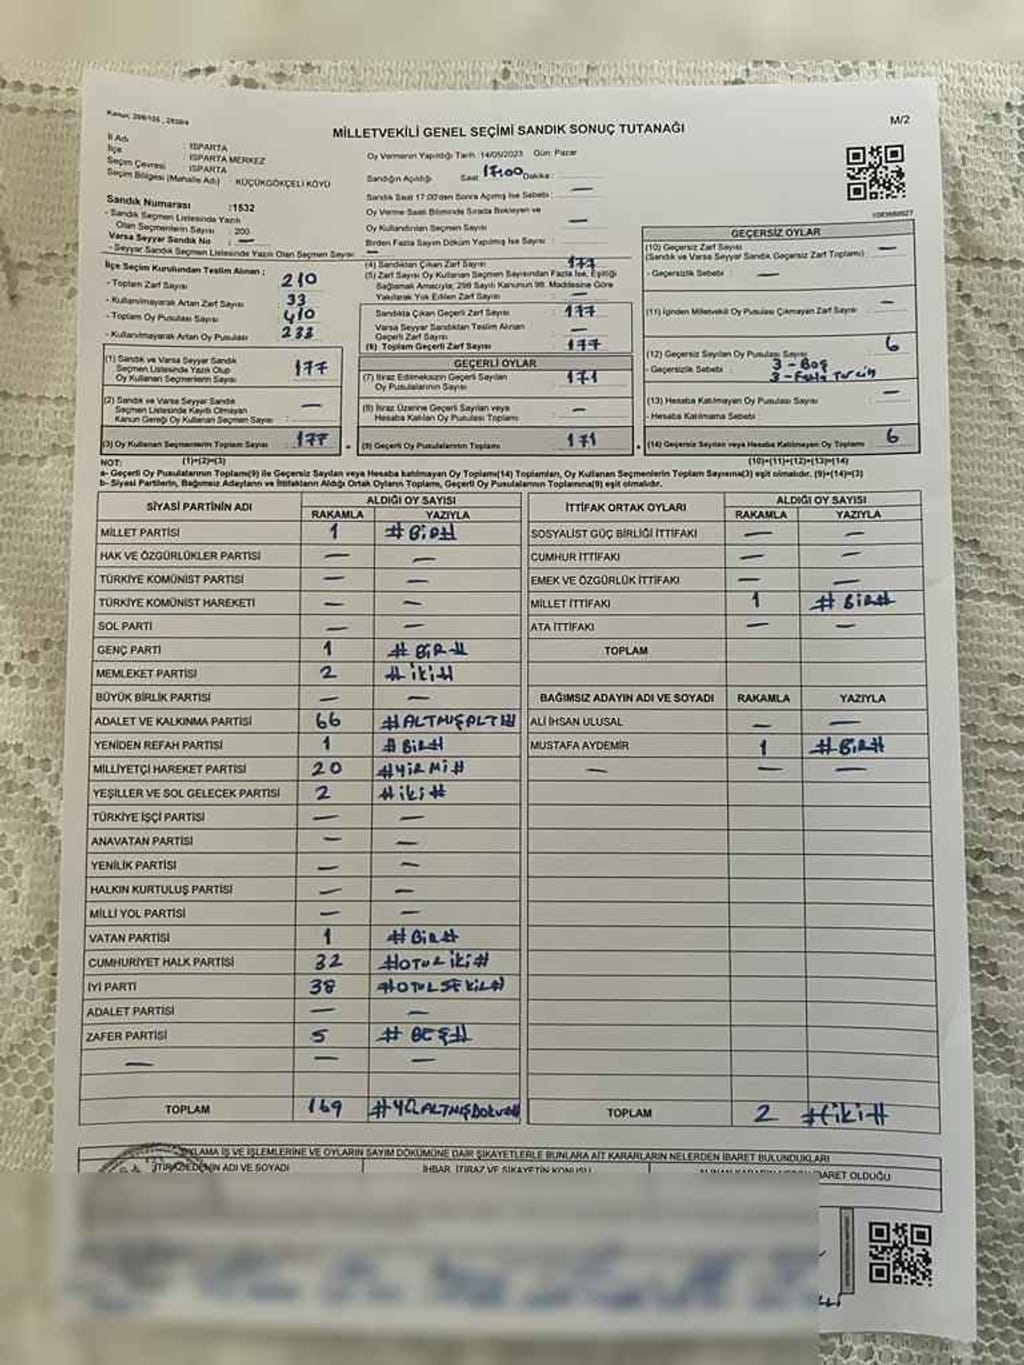 Kanun: 298/105, 2839/4
M/2
MİLLETVEKİLİ GENEL SEÇİMİ SANDIK SONUÇ TUTANAĞI
İl Adı : ISPARTA
İlçe : ISPARTA MERKEZ
Seçim Çevresi : ISPARTA
Seçim Bölgesi (Mahalle Adı) : KÜÇÜKGÖKÇELİ KÖYÜ
Sandık Numarası :1532
- Sandık Seçmen Listesinde Yazılı
Olan Seçmenlerin Sayısı : 200
Varsa Seyyar Sandık No : —
- Seyyar Sandık Seçmen Listesinde Yazılı Olan Seçmen Sayısı : —
Oy Vermenin Yapıldığı Tarih :14/05/2023 Gün: Pazar
Sandığın Açıldığı Saat 17:00 Dakika :
Sandık Saat 17.00'den Sonra Açılmış İse Sebebi : —
Oy Verme Saati Bitiminde Sırada Bekleyen ve
Oy Kullandırılan Seçmen Sayısı : —
Birden Fazla Sayım Döküm Yapılmış İse Sayısı : —
İlçe Seçim Kurulundan Teslim Alınan :
- Toplam Zarf Sayısı : 210
- Kullanılmayarak Artan Zarf Sayısı : 33
- Toplam Oy Pusulası Sayısı : 410
- Kullanılmayarak Artan Oy Pusulası : 233
(1) Sandık ve Varsa Seyyar Sandık
Seçmen Listesinde Yazılı Olup
Oy Kullanan Seçmenlerin Sayısı : 177
(2) Sandık ve Varsa Seyyar Sandık
Seçmen Listesinde Kayıtlı Olmayan
Kanun Gereği Oy Kullanan Seçmen Sayısı : —
(3) Oy Kullanan Seçmenlerin Toplam Sayısı : 177
(4) Sandıktan Çıkan Zarf Sayısı : 177
(5) Zarf Sayısı Oy Kullanan Seçmen Sayısından Fazla İse, Eşitliği
Sağlamak Amacıyla; 298 Sayılı Kanunun 98. Maddesine Göre
Yakılarak Yok Edilen Zarf Sayısı : —
Sandıkta Çıkan Geçerli Zarf Sayısı : 177
Varsa Seyyar Sandıktan Teslim Alınan
Geçerli Zarf Sayısı : —
(6) Toplam Geçerli Zarf Sayısı : 177
GEÇERLİ OYLAR
(7) İtiraz Edilmeksizin Geçerli Sayılan
Oy Pusulalarının Sayısı : 171
(8) İtiraz Üzerine Geçerli Sayılan veya
Hesaba Katılan Oy Pusulası Toplamı : —
(9) Geçerli Oy Pusulalarının Toplamı : 171
GEÇERSİZ OYLAR
(10) Geçersiz Zarf Sayısı : —
(Sandık ve Varsa Seyyar Sandık Geçersiz Zarf Toplamı)
- Geçersizlik Sebebi : —
(11) İçinden Milletvekili Oy Pusulası Çıkmayan Zarf Sayısı : —
(12) Geçersiz Sayılan Oy Pusulası Sayısı : 6
- Geçersizlik Sebebi : 3 - Boş
3 - Fazla Tercih
(13) Hesaba Katılmayan Oy Pusulası Sayısı : —
- Hesaba Katılmama Sebebi :
(14) Geçersiz Sayılan veya Hesaba Katılmayan Oy Toplamı : 6
NOT: (1)+(2)=(3) (10)+(11)+(12)+(13)=(14)
a- Geçerli Oy Pusulalarının Toplamı(9) ile Geçersiz Sayılan veya Hesaba katılmayan Oy Toplamı(14) Toplamları, Oy Kullanan Seçmenlerin Toplam Sayısına(3) eşit olmalıdır. (9)+(14)=(3)
b- Siyasi Partilerin, Bağımsız Adayların ve İttifakların Aldığı Ortak Oyların Toplamı, Geçerli Oy Pusulalarının Toplamına(9) eşit olmalıdır.
SİYASİ PARTİNİN ADI ALDIĞI OY SAYISI
RAKAMLA YAZIYLA
MİLLET PARTİSİ 1 #BİR#
HAK VE ÖZGÜRLÜKLER PARTİSİ — —
TÜRKİYE KOMÜNİST PARTİSİ — —
TÜRKİYE KOMÜNİST HAREKETİ — —
SOL PARTİ — —
GENÇ PARTİ 1 #BİR#
MEMLEKET PARTİSİ 2 #İKİ#
BÜYÜK BİRLİK PARTİSİ — —
ADALET VE KALKINMA PARTİSİ 66 #ALTMIŞALTI#
YENİDEN REFAH PARTİSİ 1 #BİR#
MİLLİYETÇİ HAREKET PARTİSİ 20 #YİRMİ#
YEŞİLLER VE SOL GELECEK PARTİSİ 2 #İKİ#
TÜRKİYE İŞÇİ PARTİSİ — —
ANAVATAN PARTİSİ — —
YENİLİK PARTİSİ — —
HALKIN KURTULUŞ PARTİSİ — —
MİLLİ YOL PARTİSİ — —
VATAN PARTİSİ 1 #BİR#
CUMHURİYET HALK PARTİSİ 32 #OTUZİKİ#
İYİ PARTİ 38 #OTUZSEKİZ#
ADALET PARTİSİ — —
ZAFER PARTİSİ 5 #BEŞ#
— — —
TOPLAM 169 #YÜZALTMIŞDOKUZ#
İTTİFAK ORTAK OYLARI ALDIĞI OY SAYISI
RAKAMLA YAZIYLA
SOSYALİST GÜÇ BİRLİĞİ İTTİFAKI — —
CUMHUR İTTİFAKI — —
EMEK VE ÖZGÜRLÜK İTTİFAKI — —
MİLLET İTTİFAKI 1 #BİR#
ATA İTTİFAKI — —
TOPLAM
BAĞIMSIZ ADAYIN ADI VE SOYADI RAKAMLA YAZIYLA
ALİ İHSAN ULUSAL — —
MUSTAFA AYDEMİR 1 #BİR#
— — —
TOPLAM 2 #İKİ#
OYLAMA İŞ VE İŞLEMLERİNE VE OYLARIN SAYIM DÖKÜMÜNE DAİR ŞİKAYETLERLE BUNLARA AİT KARARLARIN NELERDEN İBARET BULUNDUKLARI
İTİRAZ EDENİN ADI VE SOYADI İHBAR, İTİRAZ VE ŞİKAYETİN KONUSU İBARET OLDUĞU